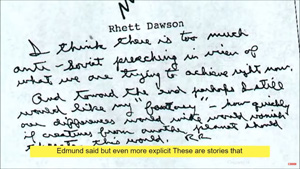 Rhett Dawson
I think there is too much
anti-Soviet preaching in view of
what we are trying to achieve right now.
And toward the end perhaps I still
would like my "fantasy" – how quickly
our differences world wide would vanish
if creatures from another planet should
this world. RR
Edmund said but even more explicit These are stories that